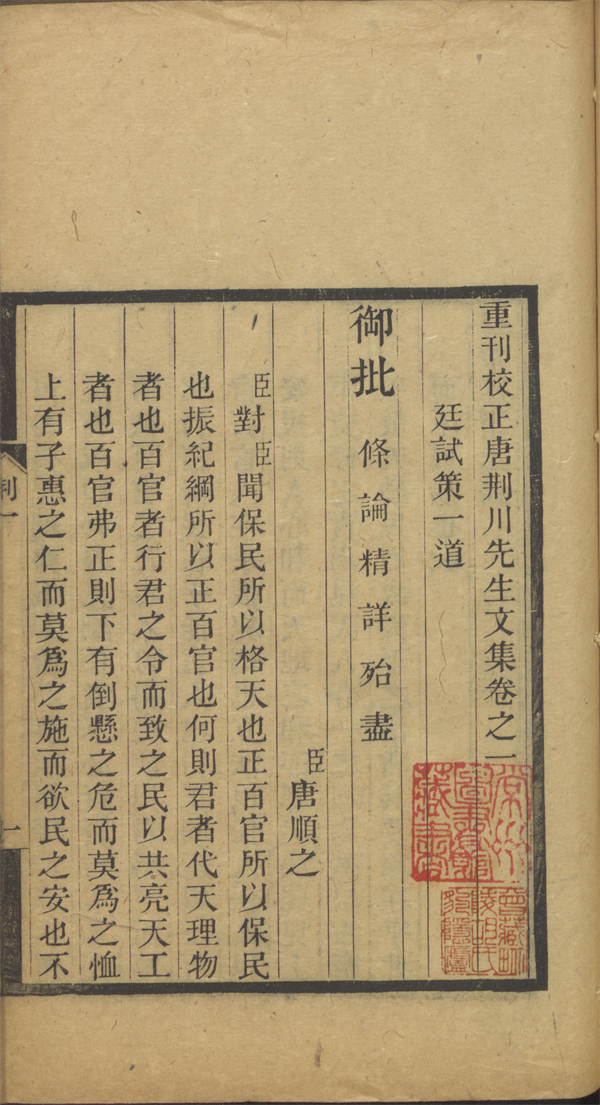 重刊校正唐荆川先生文集卷之一
廷試策一道
御批 條論精詳殆盡
臣唐順之
臣對臣聞保民所以格天也正百官所以保民
也振紀綱所以正百官也何則君者代天理物
者也百官者行君之令而致之民以共亮天工
者也百官弗正則下有倒懸之危而莫爲之恤
上有子惠之仁而莫爲之施而欲民之安也不
一
常州圖書館藏書